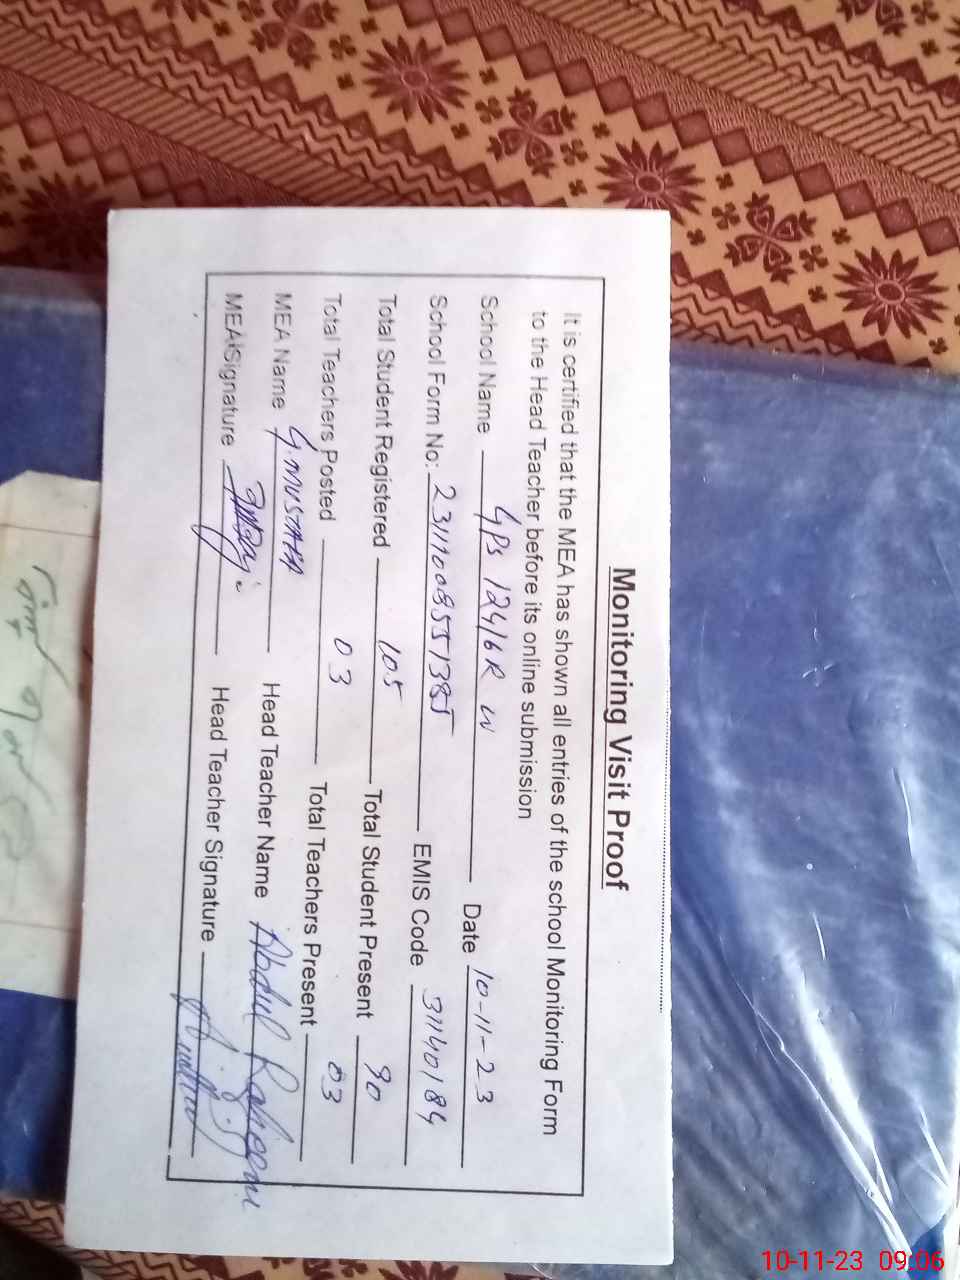 Monitoring Visit Proof
It is certified that the MEA has shown all entries of the school Monitoring Form
to the Head Teacher before its online submission
School Name GPS 124/6R W Date 10-11-23
School Form No: EMIS Code 31140184
Total Student Registered 105 Total Student Present 90
Total Teachers Posted 03 Total Teachers Present 03
MEA Name G. MUSTAFA Head Teacher Name Abdul Raheem
MEA Signature Head Teacher Signature
10-11-23 09:06